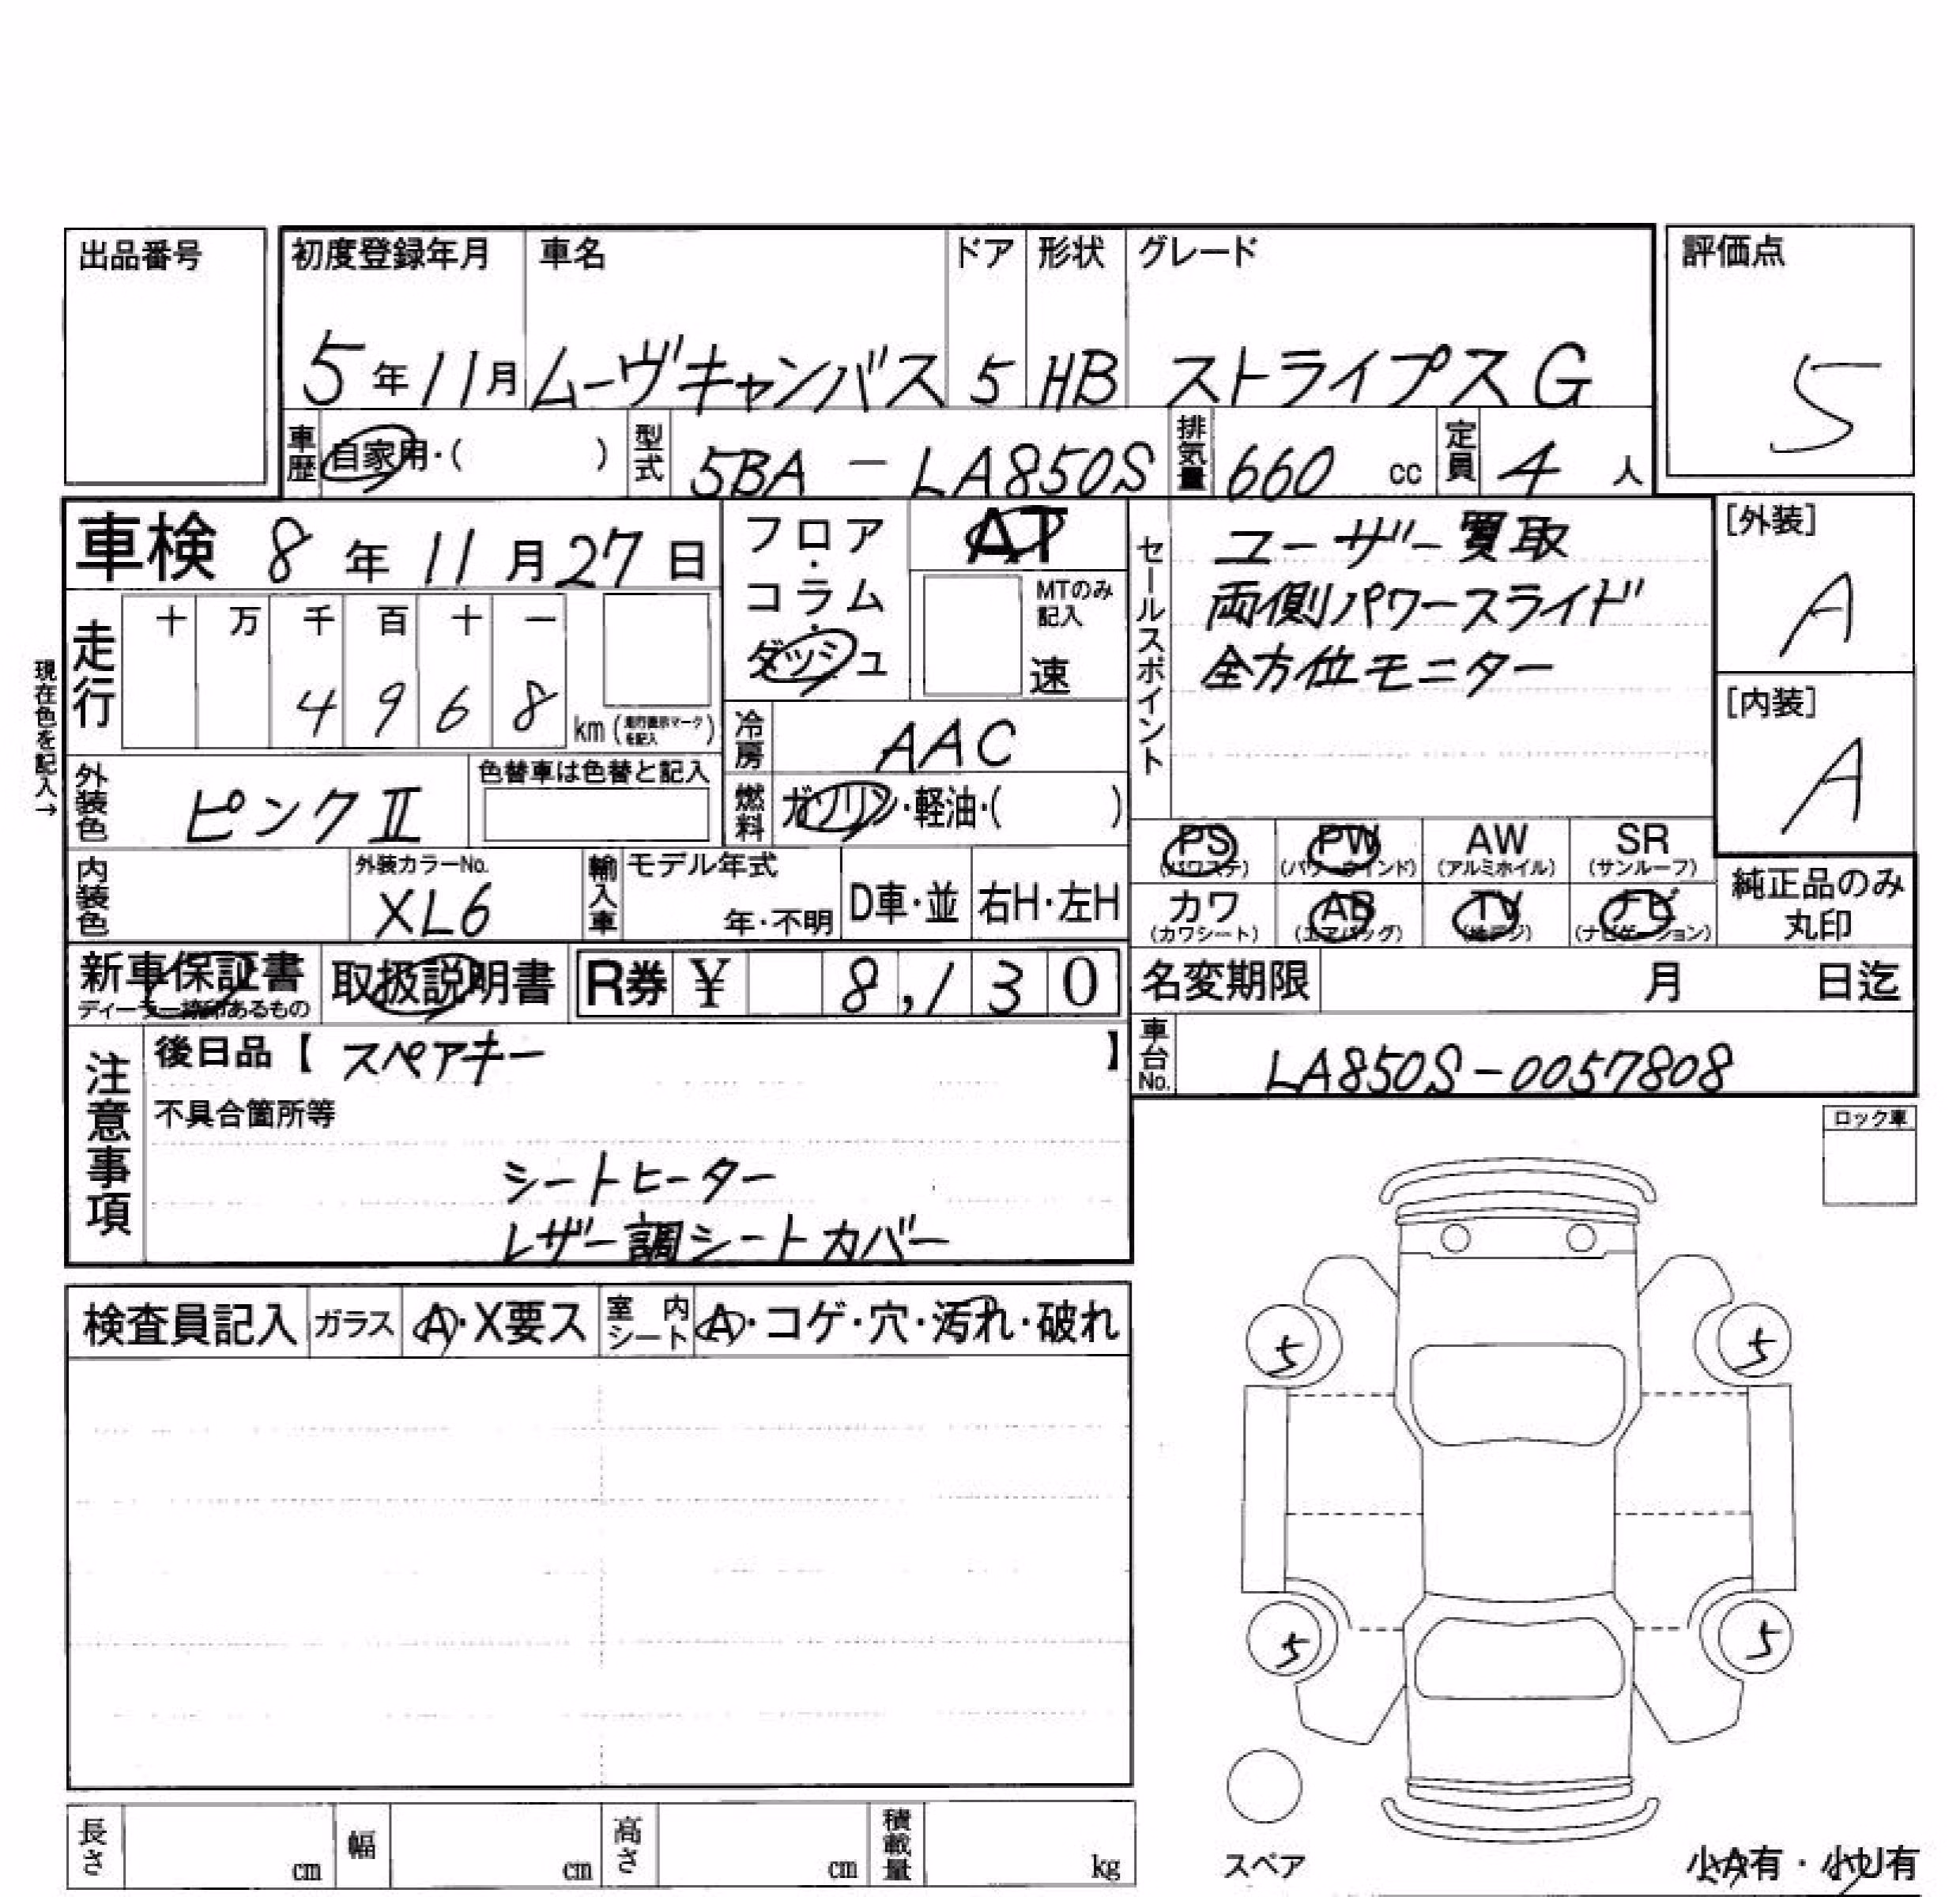 出品番号
初度登録年月 車名 ドア 形状 グレード 評価点
5年11月 ムーヴキャンバス 5 HB ストライプスG 5
車歴 自家用・( ) 型式 5BA-LA850S 排気量 660 cc 定員 4 人
車検 8年11月27日
フロア・コラム・ダッシュ
AT
MTのみ記入
速
セールスポイント
ユーザー買取
両側パワースライド
全方位モニター
[外装]
A
[内装]
A
現在色を記入→
走行 十 万 千 百 十 一
4 9 6 8 km (走行表示マークを記入)
冷房 AAC
外装色 ピンクⅡ 色替車は色替と記入
燃料 ガソリン・軽油・( )
PS (パワステ) PW (パワーウインド) AW (アルミホイル) SR (サンルーフ)
カワ (カワシート) AB (エアバッグ) TV (地デジ) ナビ (ナビゲーション)
純正品のみ
丸印
内装色 外装カラーNo. XL6 輸入車 モデル年式 年・不明 D車・並 右H・左H
新車保証書 取扱説明書 R券 ¥ 8,130
ディーラー捺印あるもの
名変期限 月 日迄
車台No. LA850S-0057808
注意事項
後日品【 スペアキー 】
不具合箇所等
シートヒーター
レザー調シートカバー
ロック車
検査員記入 ガラス A・X要ス 室内シート A・コゲ・穴・汚れ・破れ
5 5
5 5
スペア
小A有・小U有
長さ cm 幅 cm 高さ cm 積載量 kg